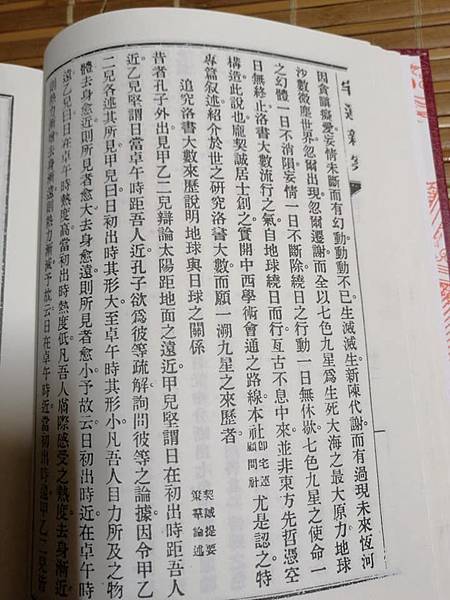 因貪瞋癡愛妄情未斷而有幻動動動不已生滅滅生新陳代謝而有過現未來恆河
沙數微塵世界忽爾出現忽爾遷謝而全以七色九星爲生死大海之最大原力地球
之幻體一日不消隕妄情一日不斷除繞日之行動一日無休歇七色九星之使命一
日無終止洛書大數流行之氣自地球繞日而行亙古不息中來並非東方先哲憑空
構造此說也龐契誠居士創之實開中西學術會通之路線本社即宅運顧問社尤是認之特
專篇叙述紹介於世之研究洛書大數而願一溯九星之來歷者
追究洛書大數來歷說明地球與日球之關係
契誠提要
策羣論述
昔者孔子外出見甲乙二兒辯論太陽距地面之遠近甲兒堅謂日在初出時距吾人
近乙兒堅謂日當卓午時距吾人近孔子欲爲彼等疏解詢問彼等之論據因令甲乙
二兒各述其所見甲兒曰日初出時其形大至卓午時其形小凡吾人目力所及之物
體去身愈近則所見者愈大去身愈遠則所見者愈小予故云日初出時近在卓午時
遠乙兒曰日在卓午時熱度高當初出時熱度低凡吾人膚際感受之熱度去身漸近
則熱力漸增去身漸遠則熱力漸減予故云日在卓午時近當初出時遠甲乙二兒所